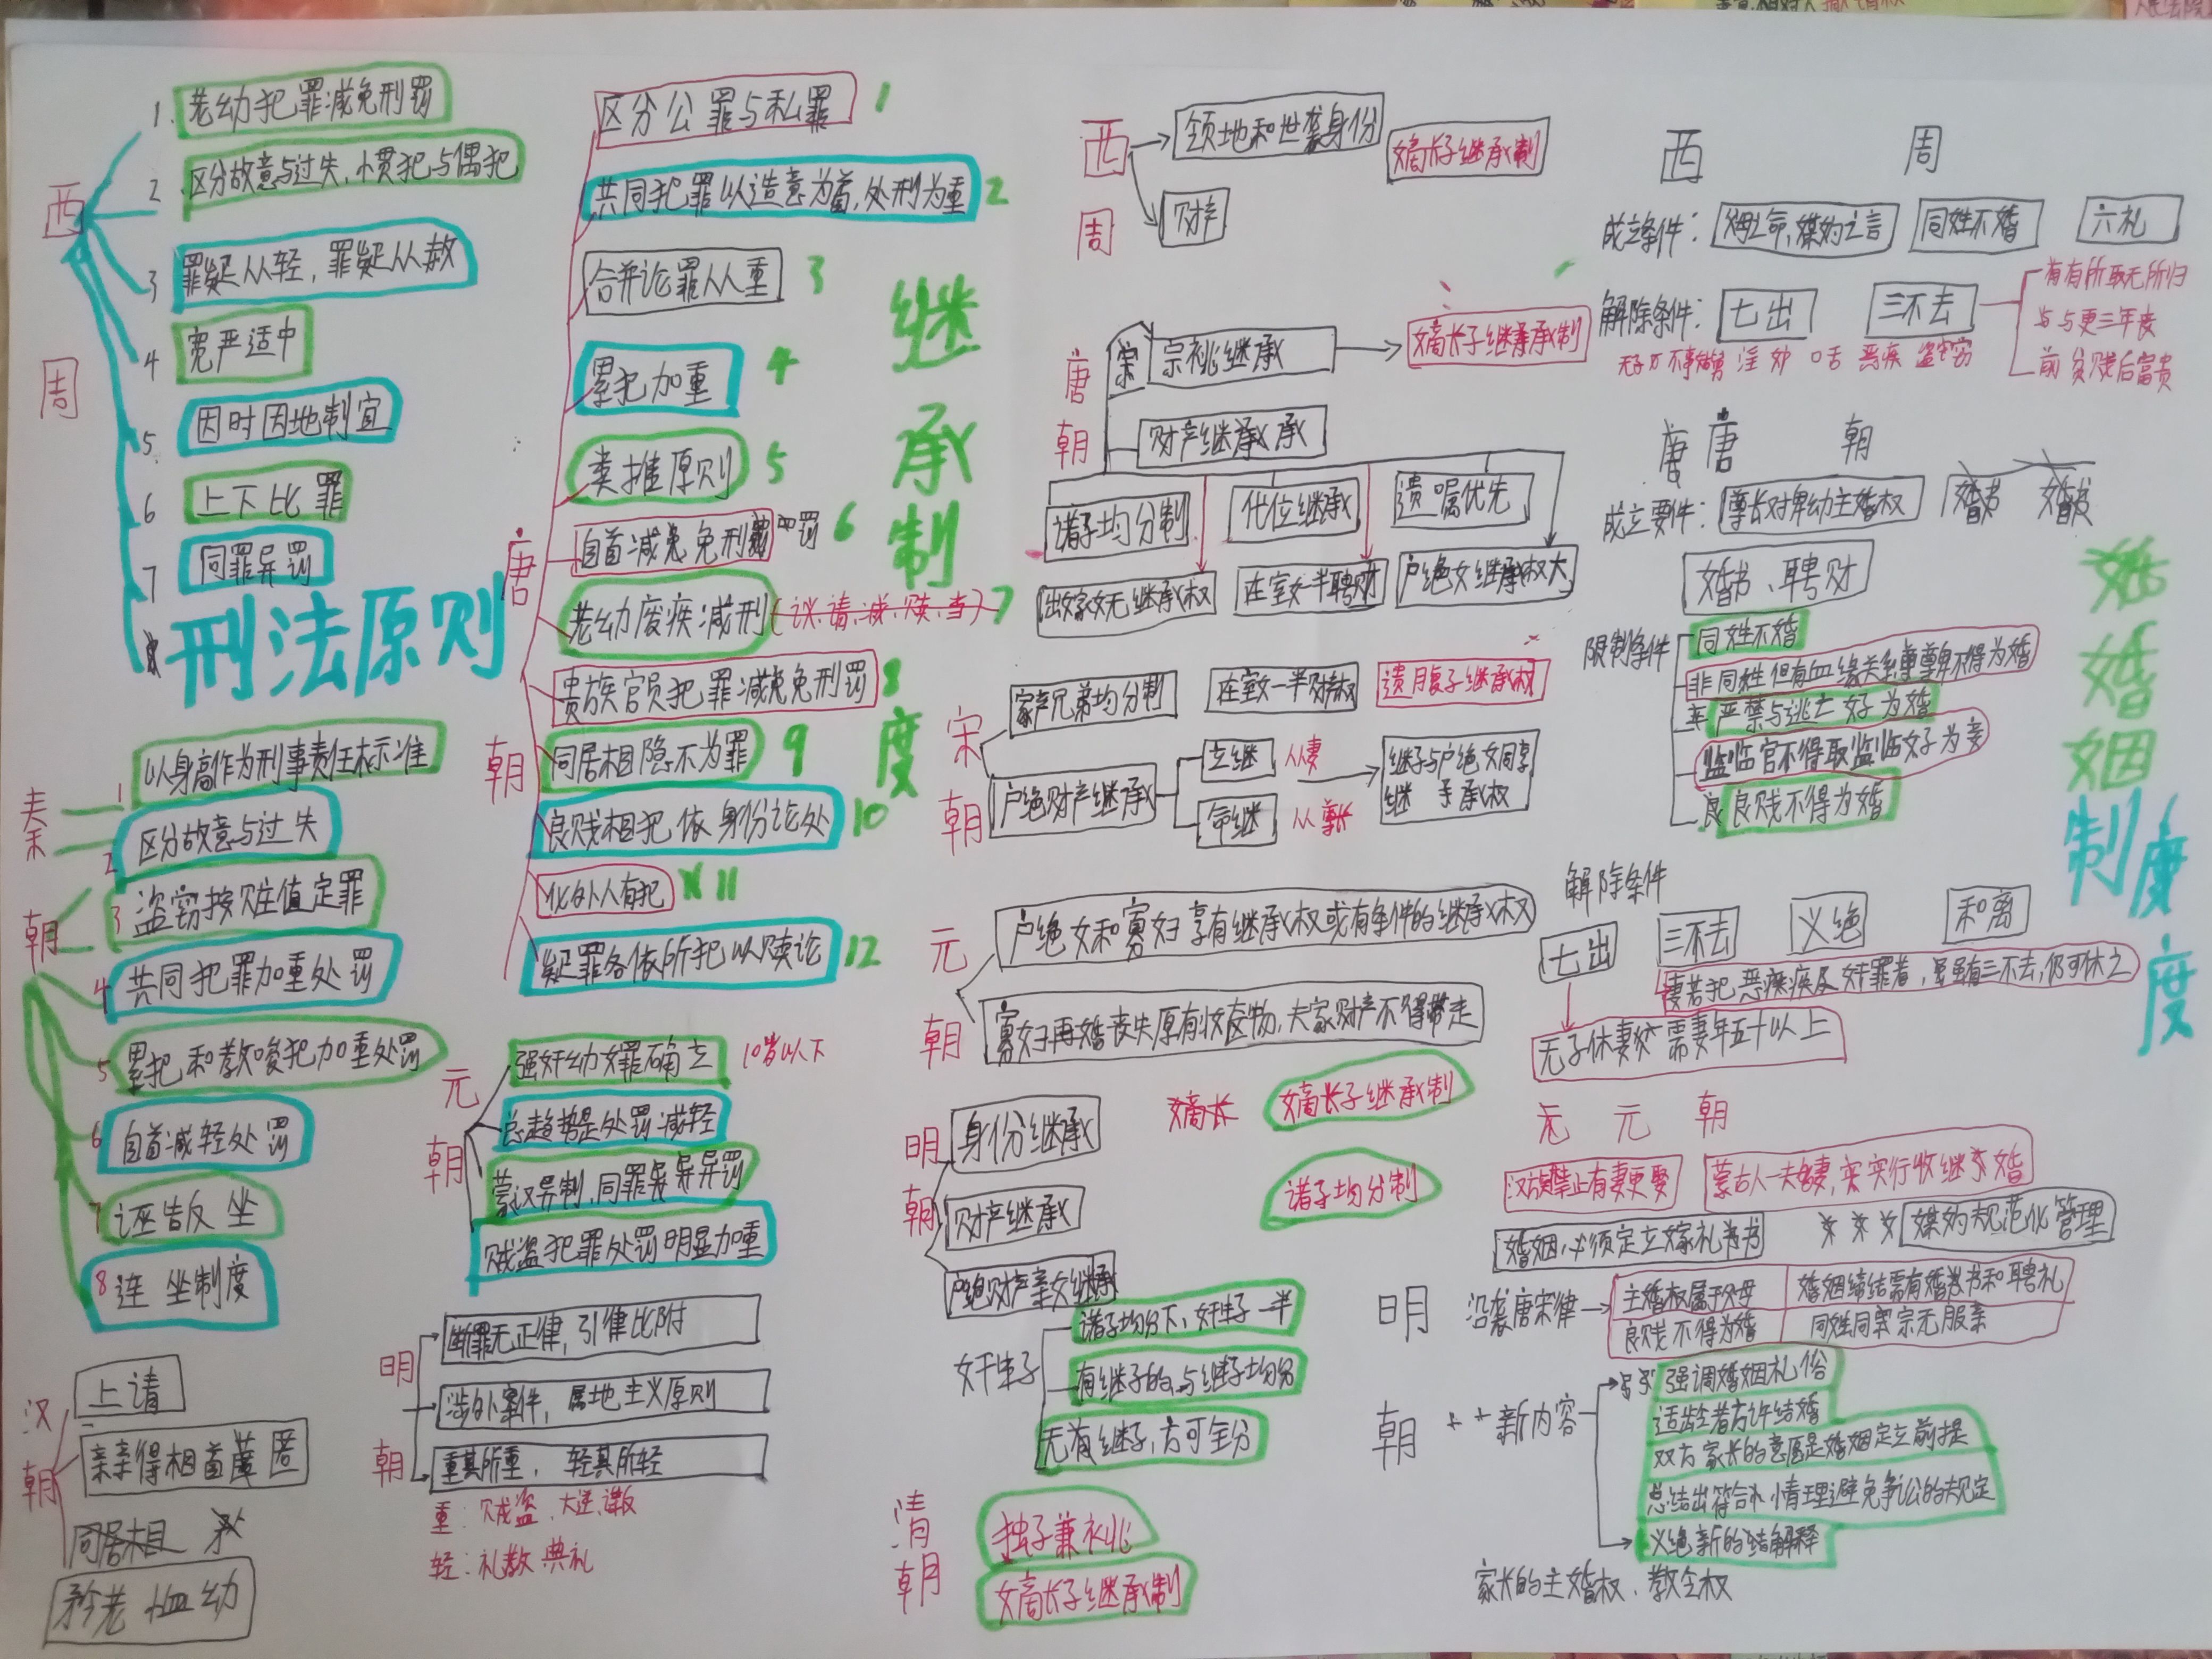 西周
1. 老幼犯罪减免刑罚
2 区分故意与过失、惯犯与偶犯
3 罪疑从轻，罪疑从赦
4 宽严适中
5. 因时因地制宜
6 上下比罪
7 同罪异罚
刑法原则
秦朝
1 以身高作为刑事责任标准
2 区分故意与过失
3 盗窃按赃值定罪
4 共同犯罪加重处罚
5 累犯和教唆犯加重处罚
6 自首减轻处罚
7 诬告反坐
8 连坐制度
汉朝
上请
亲亲得相首匿
同居相
矜老恤幼
唐朝
区分公罪与私罪 1
共同犯罪以造意为首,处刑为重 2
合并论罪从重 3
累犯加重 4
类推原则 5
自首减免免刑罚 6
老幼废疾减刑(议.请.减.赎.当) 7
贵族官员犯罪减免免刑罚 8
同居相隐不为罪 9
良贱相犯依身份论处 10
化外人有犯 11
疑罪各依所犯以赎论 12
元朝
强奸幼女罪确立 10岁以下
总趋势是处罚减轻
蒙汉异制,同罪异异异罚
贼盗犯罪处罚明显加重
明朝
断罪无正律，引律比附
涉外案件，属地主义原则
重其所重，轻其所轻
重：贼盗、大逆、谋反
轻：礼教 典礼
继承制度
西周
领地和世袭身份 嫡长子继承制
财产
唐朝
宗 宗祧继承 嫡长子继承承制
财产继承承
诸子均分制 代位继承 遗嘱优先
出嫁女无继承权 在室女一半聘财 户绝女继承权大
宋朝
家产兄弟均分制 在室女一半财权 遗腹子继承权
户绝财产继承
立继 从妻
命继 从尊长
继子与户绝女同享
继 承权
元朝
户绝女和寡妇享有继承权或有条件的继承权
寡妇再婚丧失原有妆奁物,夫家财产不得带走
明朝
身份继承 嫡长 嫡长子继承制
财产继承 诸子均分制
户绝财产亲女继承
奸生子
诸子均分下,奸生子一半
有继子的,与继子均分
无有继子,方可全分
清朝
独子兼祧
嫡长子继承制
婚姻制度
西周
成立条件： 父母之命,媒妁之言 同姓不婚 六礼
解除条件： 七出 三不去
无子 不事舅姑 淫 妒 口舌 恶疾 盗窃
有有所取无所归
与与更三年丧
前贫贱后富贵
唐唐朝
成立要件： 尊长对卑幼主婚权 婚书 婚书
婚书、聘财
限制条件
同姓不婚
非同姓但有血缘关系尊尊卑不得为婚
严禁与逃亡女为婚
监临官不得取监临女子为妾
良 良贱不得为婚
解除条件
七出 三不去 义绝 和离
妻若犯恶疾疾及奸罪者，虽虽有三不去,仍可休之
无子休妻 需妻年五十以上
元 元朝
汉族禁止有妻更娶 蒙古人一夫多妻,实实行收继婚
婚姻必须定立嫁礼书书 媒妁规范化管理
明朝
沿袭唐宋律
主婚权属于父母 婚姻缔结需有婚书和聘礼
良贱不得为婚 同姓同宗无服亲
新内容
强调婚姻礼俗
适龄者方许结婚
双方家长的意愿是婚姻定立前提
总结出符合 情理避免争讼的规定
义绝新的 解释
家长的主婚权、教令权